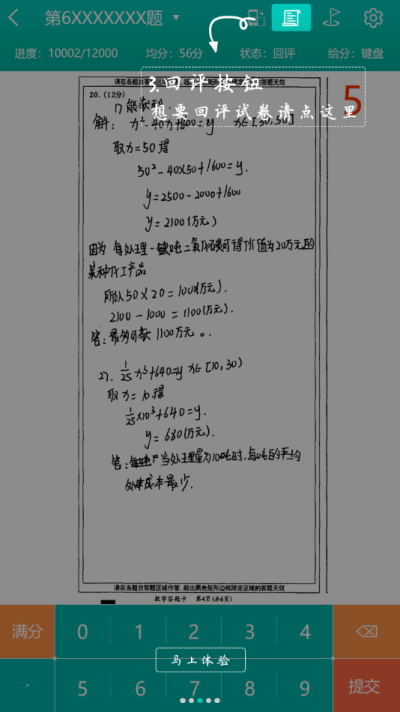 第6XXXXXXX题
进度：10002/12000 均分：56分 状态：回评 给分：键盘
请在各题目的答题区域内作答，超出黑色矩形边框限定区域的答案无效
3.回评按钮
想要回评试卷请点这里
5
20.（12分）
1) 能获利.
解：x²-40x+1600=y x∈[30,50]
取x=50得
50²-40×50+1600=y.
y=2500-2000+1600
y=2100(万元)
因为 每处理一吨二氧化碳可得价值为20万元的
某种化工产品
所以50×20=1000(万元).
2100-1000=1100(万元).
答：最多可获1100万元。
2). 1/25x³+640=y x∈[10,30)
取x=10得
1/25×10³+640=y.
y=680(万元).
答：当处理量为10吨时,每吨的平均
处理成本最少.
请在各题目答题区域作答，超出黑色矩形边框限定区域的答案无效
数学答题卡 第4页(共6页)
满分 0 1 2 3 4
马上体验
. 5 6 7 8 9 提交